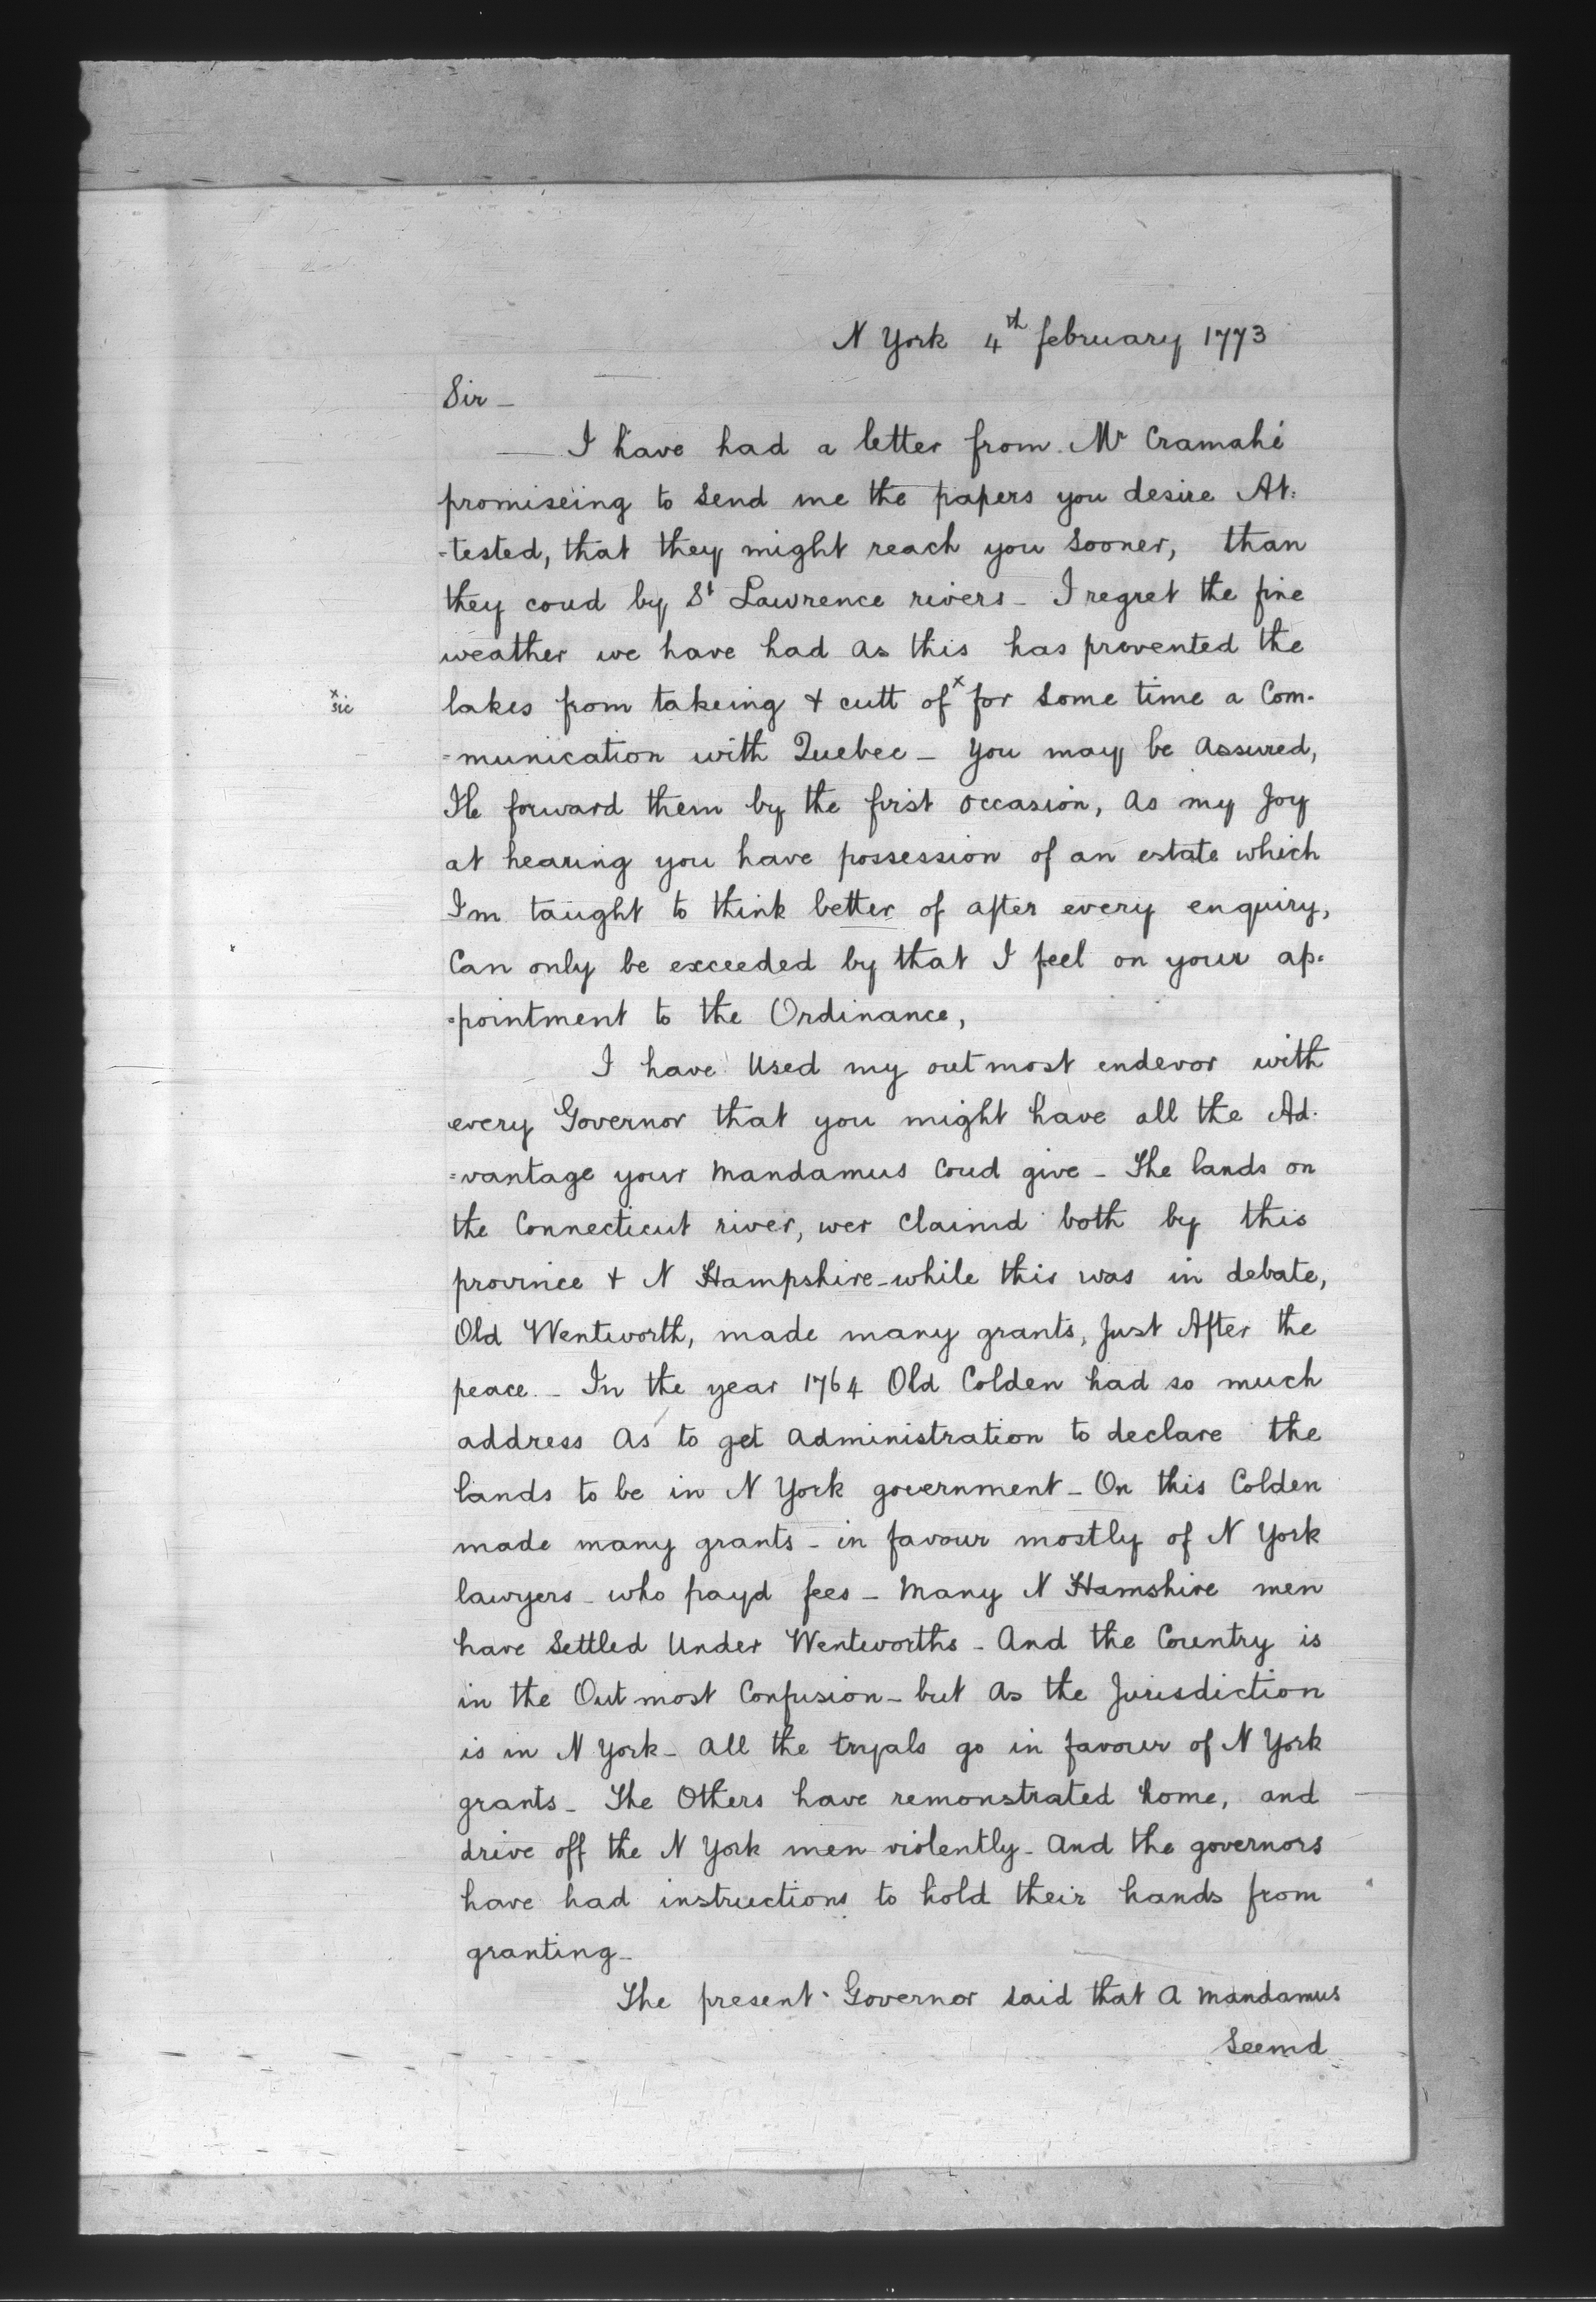 N York 4th february 1773
Sir —
I have had a letter from Mr Cramahé
promiseing to Send me the papers you desire At:
-tested, that they might reach you Sooner, than
they coud by St Lawrence rivers — I regret the fine
weather we have had As this has prevented the
x
sic
lakes from takeing & cutt of x for Some time a Com-
=munication with Quebec — You may be Assured,
Ile forward them by the first occasion, As my Joy
at hearing you have possession of an estate which
I'm taught to think better of after every enquiry,
Can only be exceeded by that I feel on your ap=
=pointment to the Ordinance,
I have Used my outmost endevor with
every Governor that you might have all the Ad-
=vantage your Mandamus Coud give — The lands on
the Connecticut river, wer Claimd both by this
province & N Hampshire — while this was in debate,
Old Wentworth, made many grants, Just After the
peace — In the year 1764 Old Colden had so much
address As to get Administration to declare the
lands to be in N York government — On this Colden
made many grants — in favour mostly of N York
lawyers — who payd fees — Many N Hamshire men
have Settled Under Wentworths — And the Country is
in the Outmost Confusion — but As the Jurisdiction
is in N York — All the tryals go in favour of N York
grants — The Others have remonstrated home, and
drive off the N York men violently — And the governors
have had instructions to hold their hands from
granting —
The present Governor said that A Mandamus
Seemd